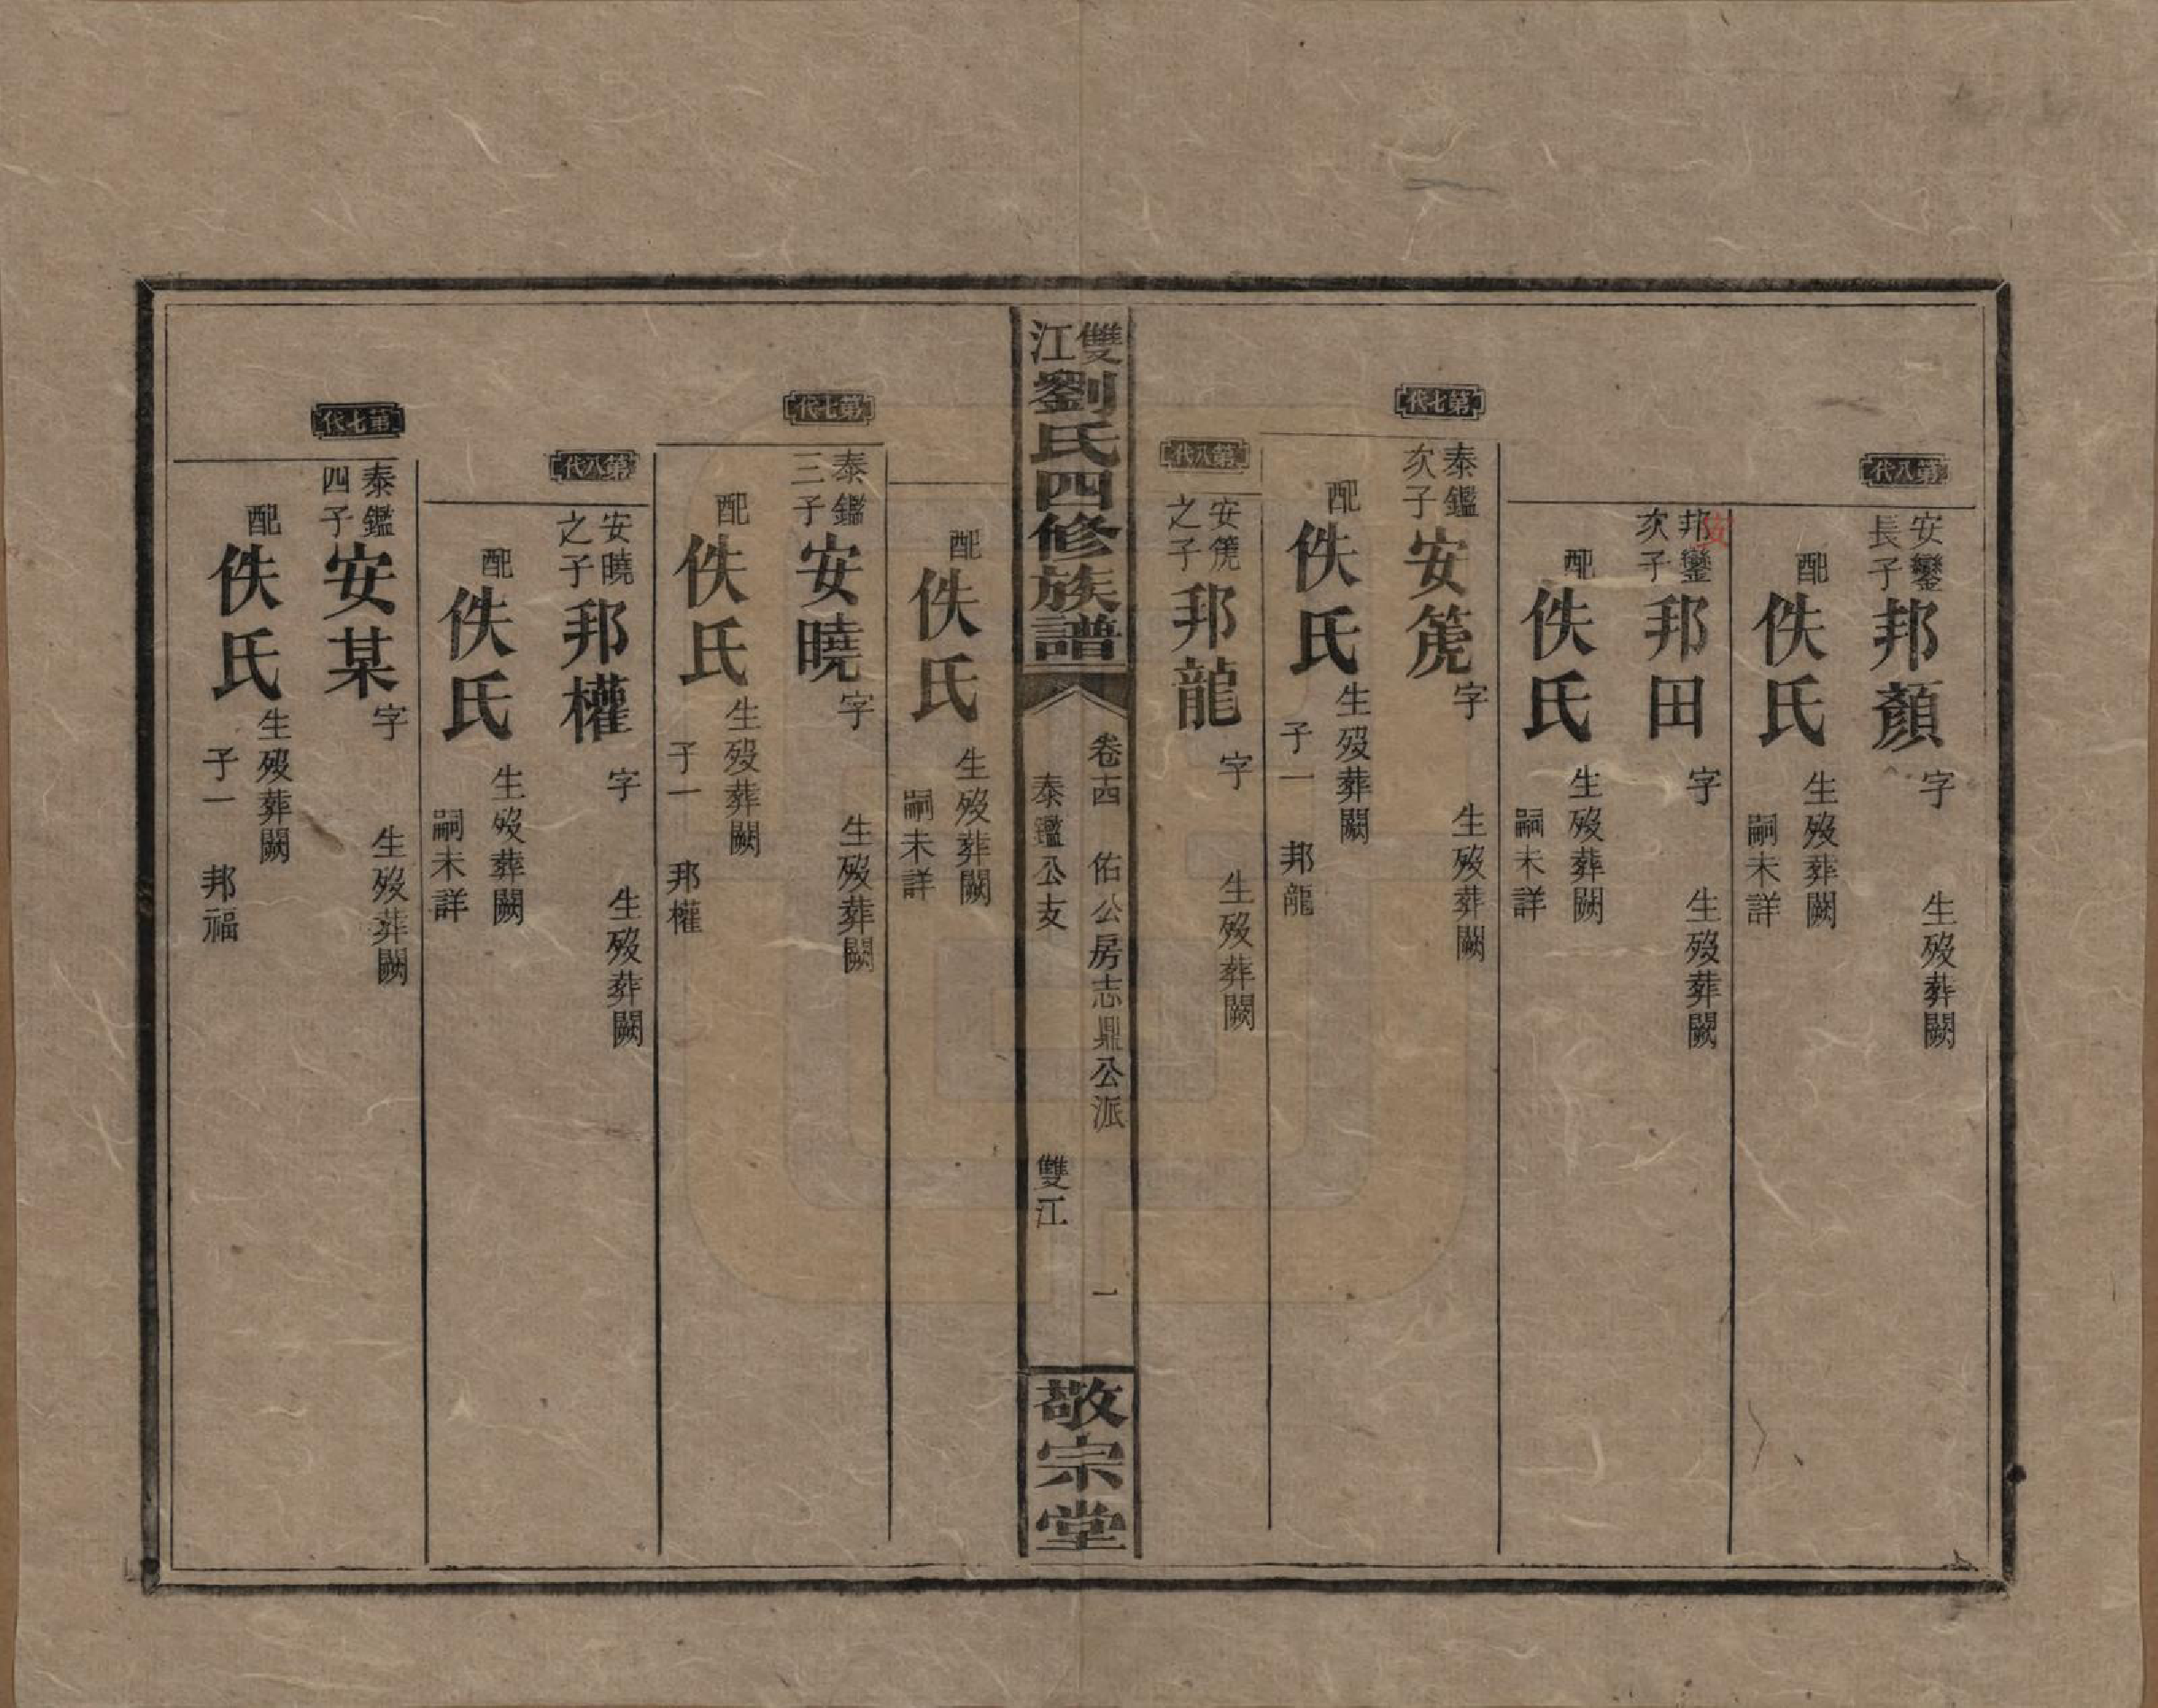 第八代
安鑾長子邦顏字 生歿葬闕
配佚氏生歿葬闕
嗣未詳
邦鑾次子邦田字 生歿葬闕
安
配佚氏生歿葬闕
嗣未詳
第七代
泰鑑次子安篪字 生歿葬闕
配佚氏生歿葬闕
子一 邦龍
第八代
安篪之子邦龍字 生歿葬闕
雙江劉氏四修族譜
卷十四 佑公房志鼎公派 一
泰鑑公支 雙江
敬宗堂
配佚氏生歿葬闕
嗣未詳
第七代
泰鑑三子安曉字 生歿葬闕
配佚氏生歿葬闕
子一 邦權
第八代
安曉之子邦權字 生歿葬闕
配佚氏生歿葬闕
嗣未詳
第七代
泰鑑四子安某字 生歿葬闕
配佚氏生歿葬闕
子一 邦福